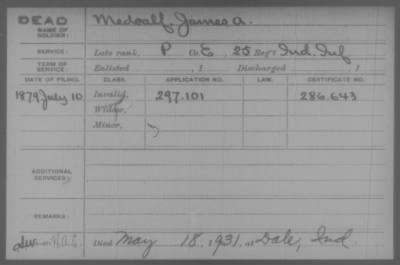 DEAD
NAME OF SOLDIER: Medcalf, James A.
SERVICE: Late rank, P Co. E, 25 Reg't Ind. Inf
TERM OF SERVICE: Enlisted , 1 Discharged , 1
DATE OF FILING. CLASS. APPLICATION NO. LAW. CERTIFICATE NO.
1879 July 10 Invalid, 297.101 286.643
Widow,
Minor,
ADDITIONAL SERVICES:
REMARKS:
Died May 18, 1931, at Dale, Ind.